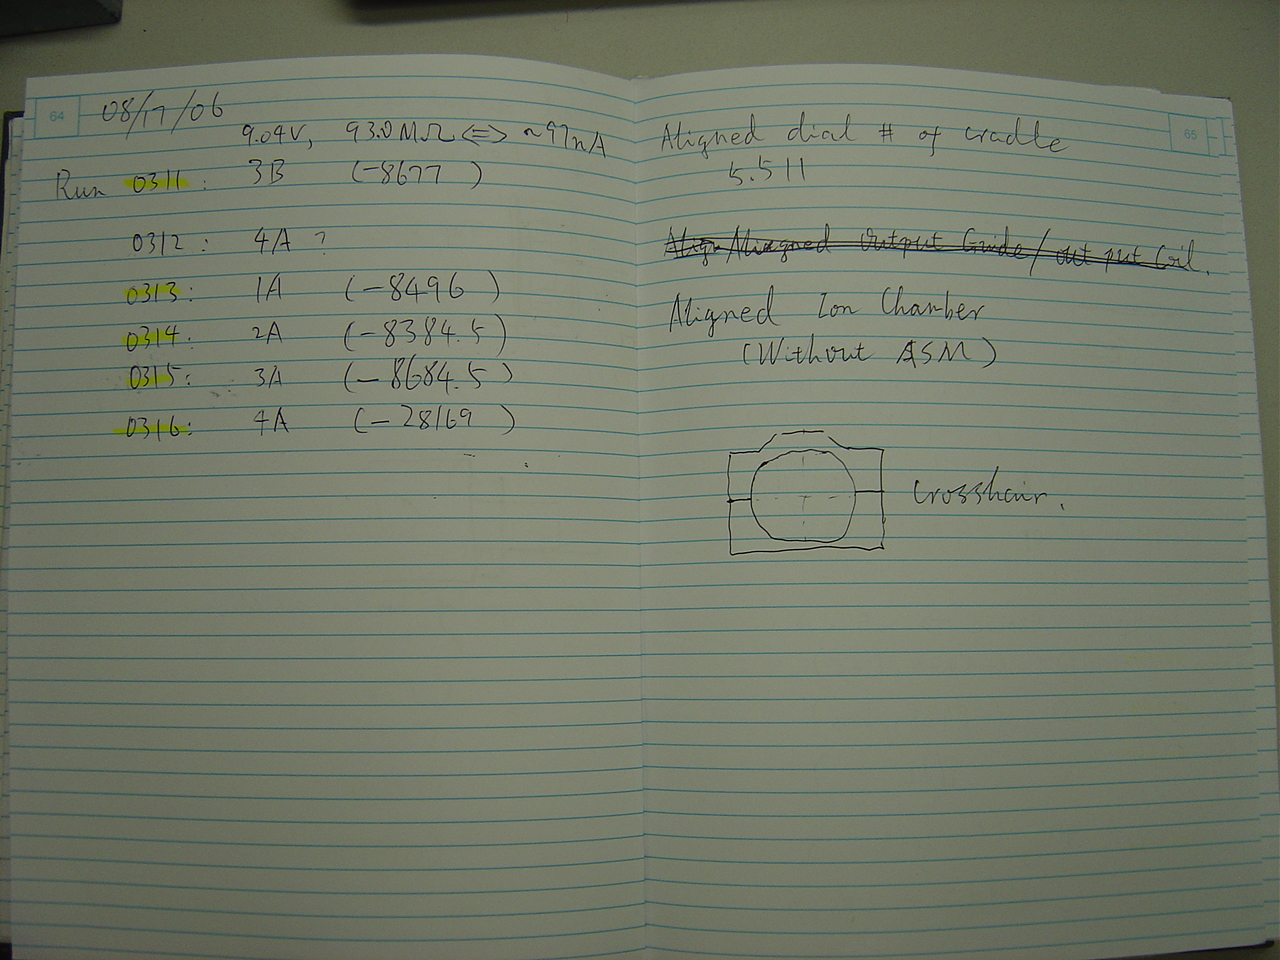 64
08/17/06
9.04V, 93.0 MΩ <=> ~97nA
Run 0311: 3B (-8677)
0312: 4A ?
0313: 1A (-8496)
0314: 2A (-8384.5)
0315: 3A (-8684.5)
0316: 4A (-28169)
65
Aligned dial # of cradle
5.511
Align Aliagned Output Guide/out put Coil.
Aligned Ion Chamber
(Without ASM)
Crosshair.